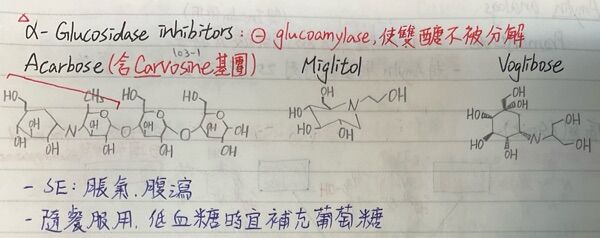 △ α-Glucosidase inhibitors: ⊖ glucoamylase, 使雙醣不被分解
103-1
Acarbose (含Carvosine基團) Miglitol Voglibose
HO CH₃ HO HO HO OH HO OH
HO OH N OH O OH O OH OH N HO HO OH
OH OH OH OH HO OH HO N OH
OH OH OH OH OH OH
- SE: 脹氣.腹瀉
- 隨餐服用, 低血糖時宜補充葡萄糖